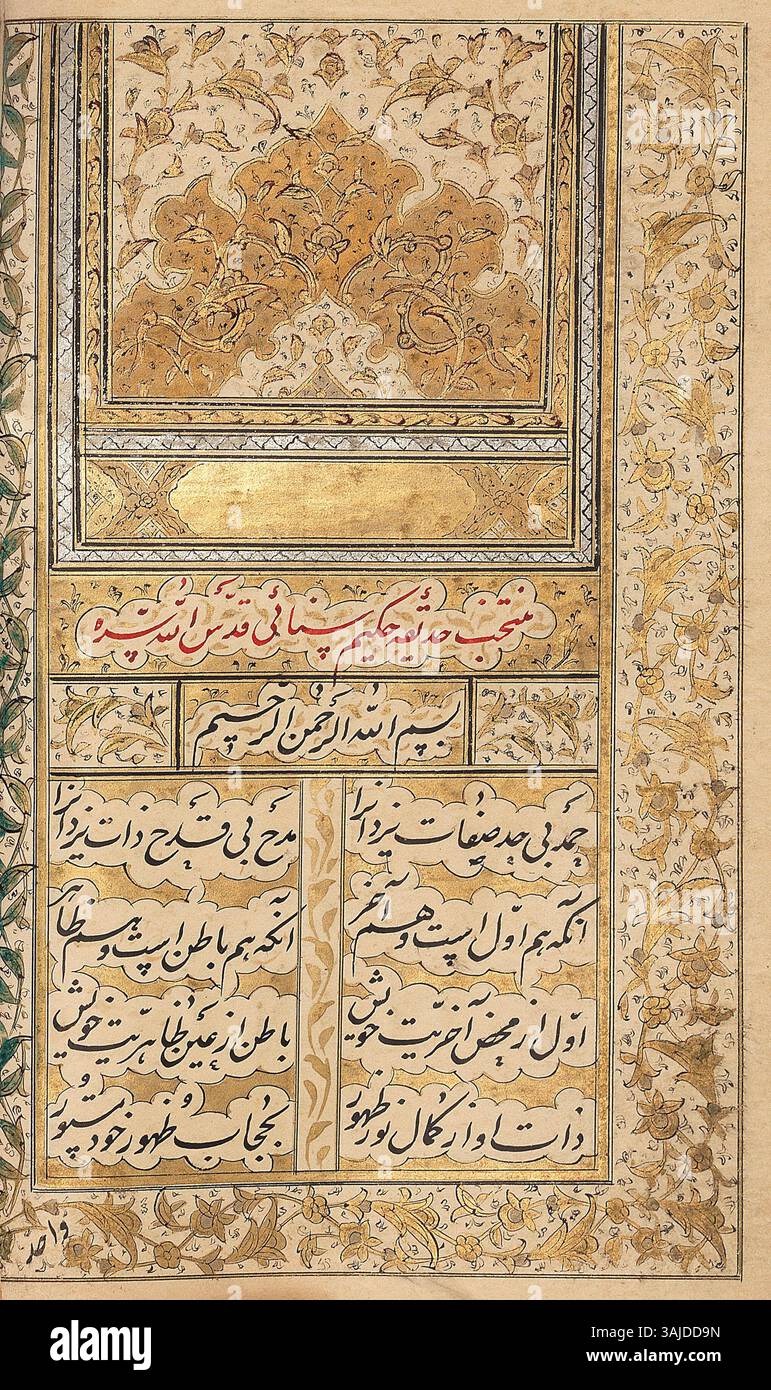 منتخب حدیقه حکیم سنائی قدّس الله سره
بسم الله الرحمن الرحیم
حمد بی حد صفات یزدانرا مدح بی قدح ذات یزدانرا
آنکه هم اوّل است و هم آخر آنکه هم باطن است و هم ظاهر
اوّل از محض آخریّت خویش باطن از عین ظاهریّت خویش
ذات او از کمال نور ظهور بحجاب ظهور خود مستور
واحد
alamy
alamy
alamy
alamy
Image ID: 3AJDD9N
www.alamy.com